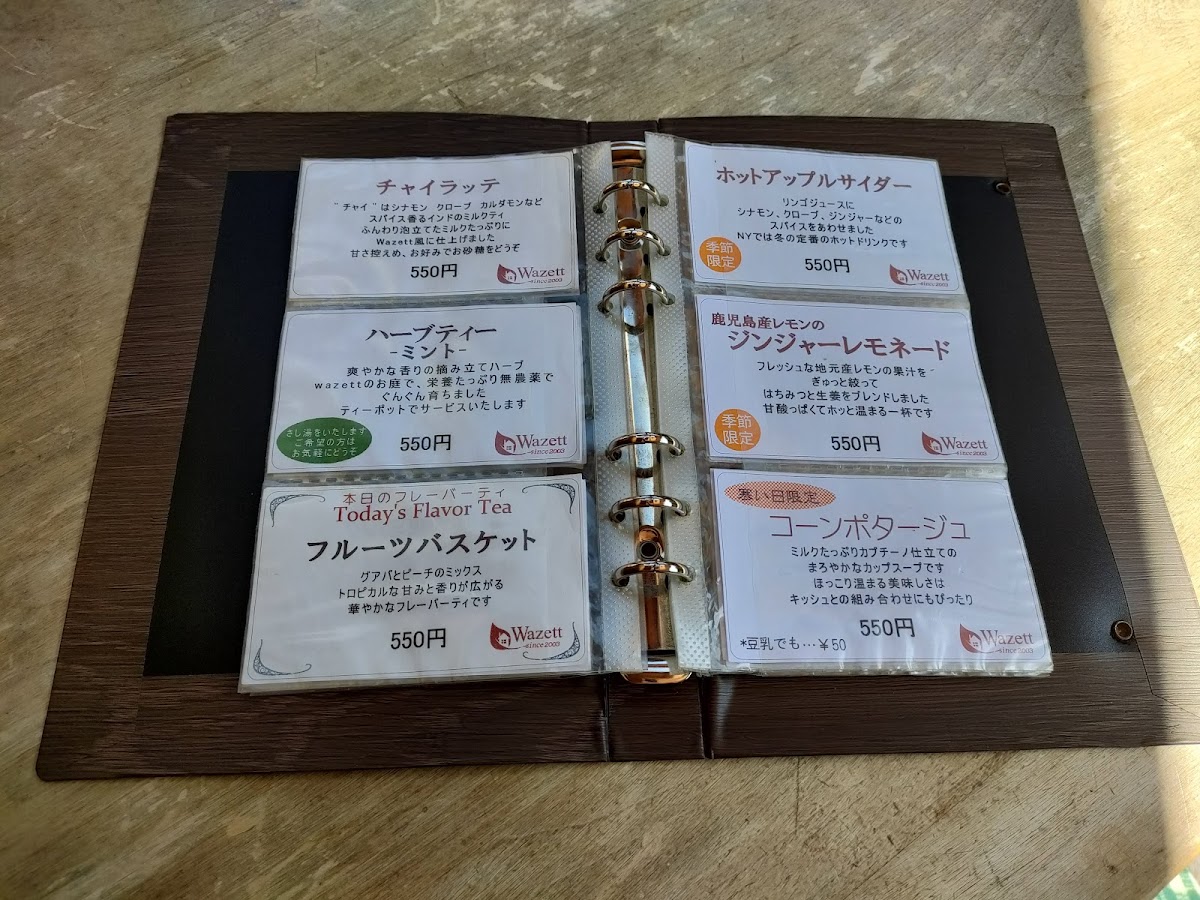 チャイラッテ
"チャイ"はシナモン クローブ カルダモンなど
スパイス香るインドのミルクティ
ふんわり泡立てたミルクたっぷりに
Wazett風に仕上げました
甘さ控えめ、お好みでお砂糖をどうぞ
550円
Wazett
since2003
ハーブティー
-ミント-
爽やかな香りの摘み立てハーブ
wazettのお庭で、栄養たっぷり無農薬で
ぐんぐん育ちました
ティーポットでサービスいたします
さし湯をいたします
ご希望の方は
お気軽にどうぞ
550円
Wazett
since2003
本日のフレーバーティ
Today's Flavor Tea
フルーツバスケット
グアバとピーチのミックス
トロピカルな甘みと香りが広がる
華やかなフレーバーティです
550円
Wazett
since2003
ホットアップルサイダー
リンゴジュースに
シナモン、クローブ、ジンジャーなどの
スパイスをあわせました
NYでは冬の定番のホットドリンクです
季節
限定
550円
Wazett
since2003
鹿児島産レモンの
ジンジャーレモネード
フレッシュな地元産レモンの果汁を
ぎゅっと絞って
はちみっと生姜をブレンドしました
甘酸っぱくてホッと温まる一杯です
季節
限定
550円
Wazett
since2003
寒い日限定
コーンポタージュ
ミルクたっぷりカプチーノ仕立ての
まろやかなカップスープです
ほっこり温まる美味しさは
キッシュとの組み合わせにもぴったり
550円
*豆乳でも…￥50
Wazett
since2003